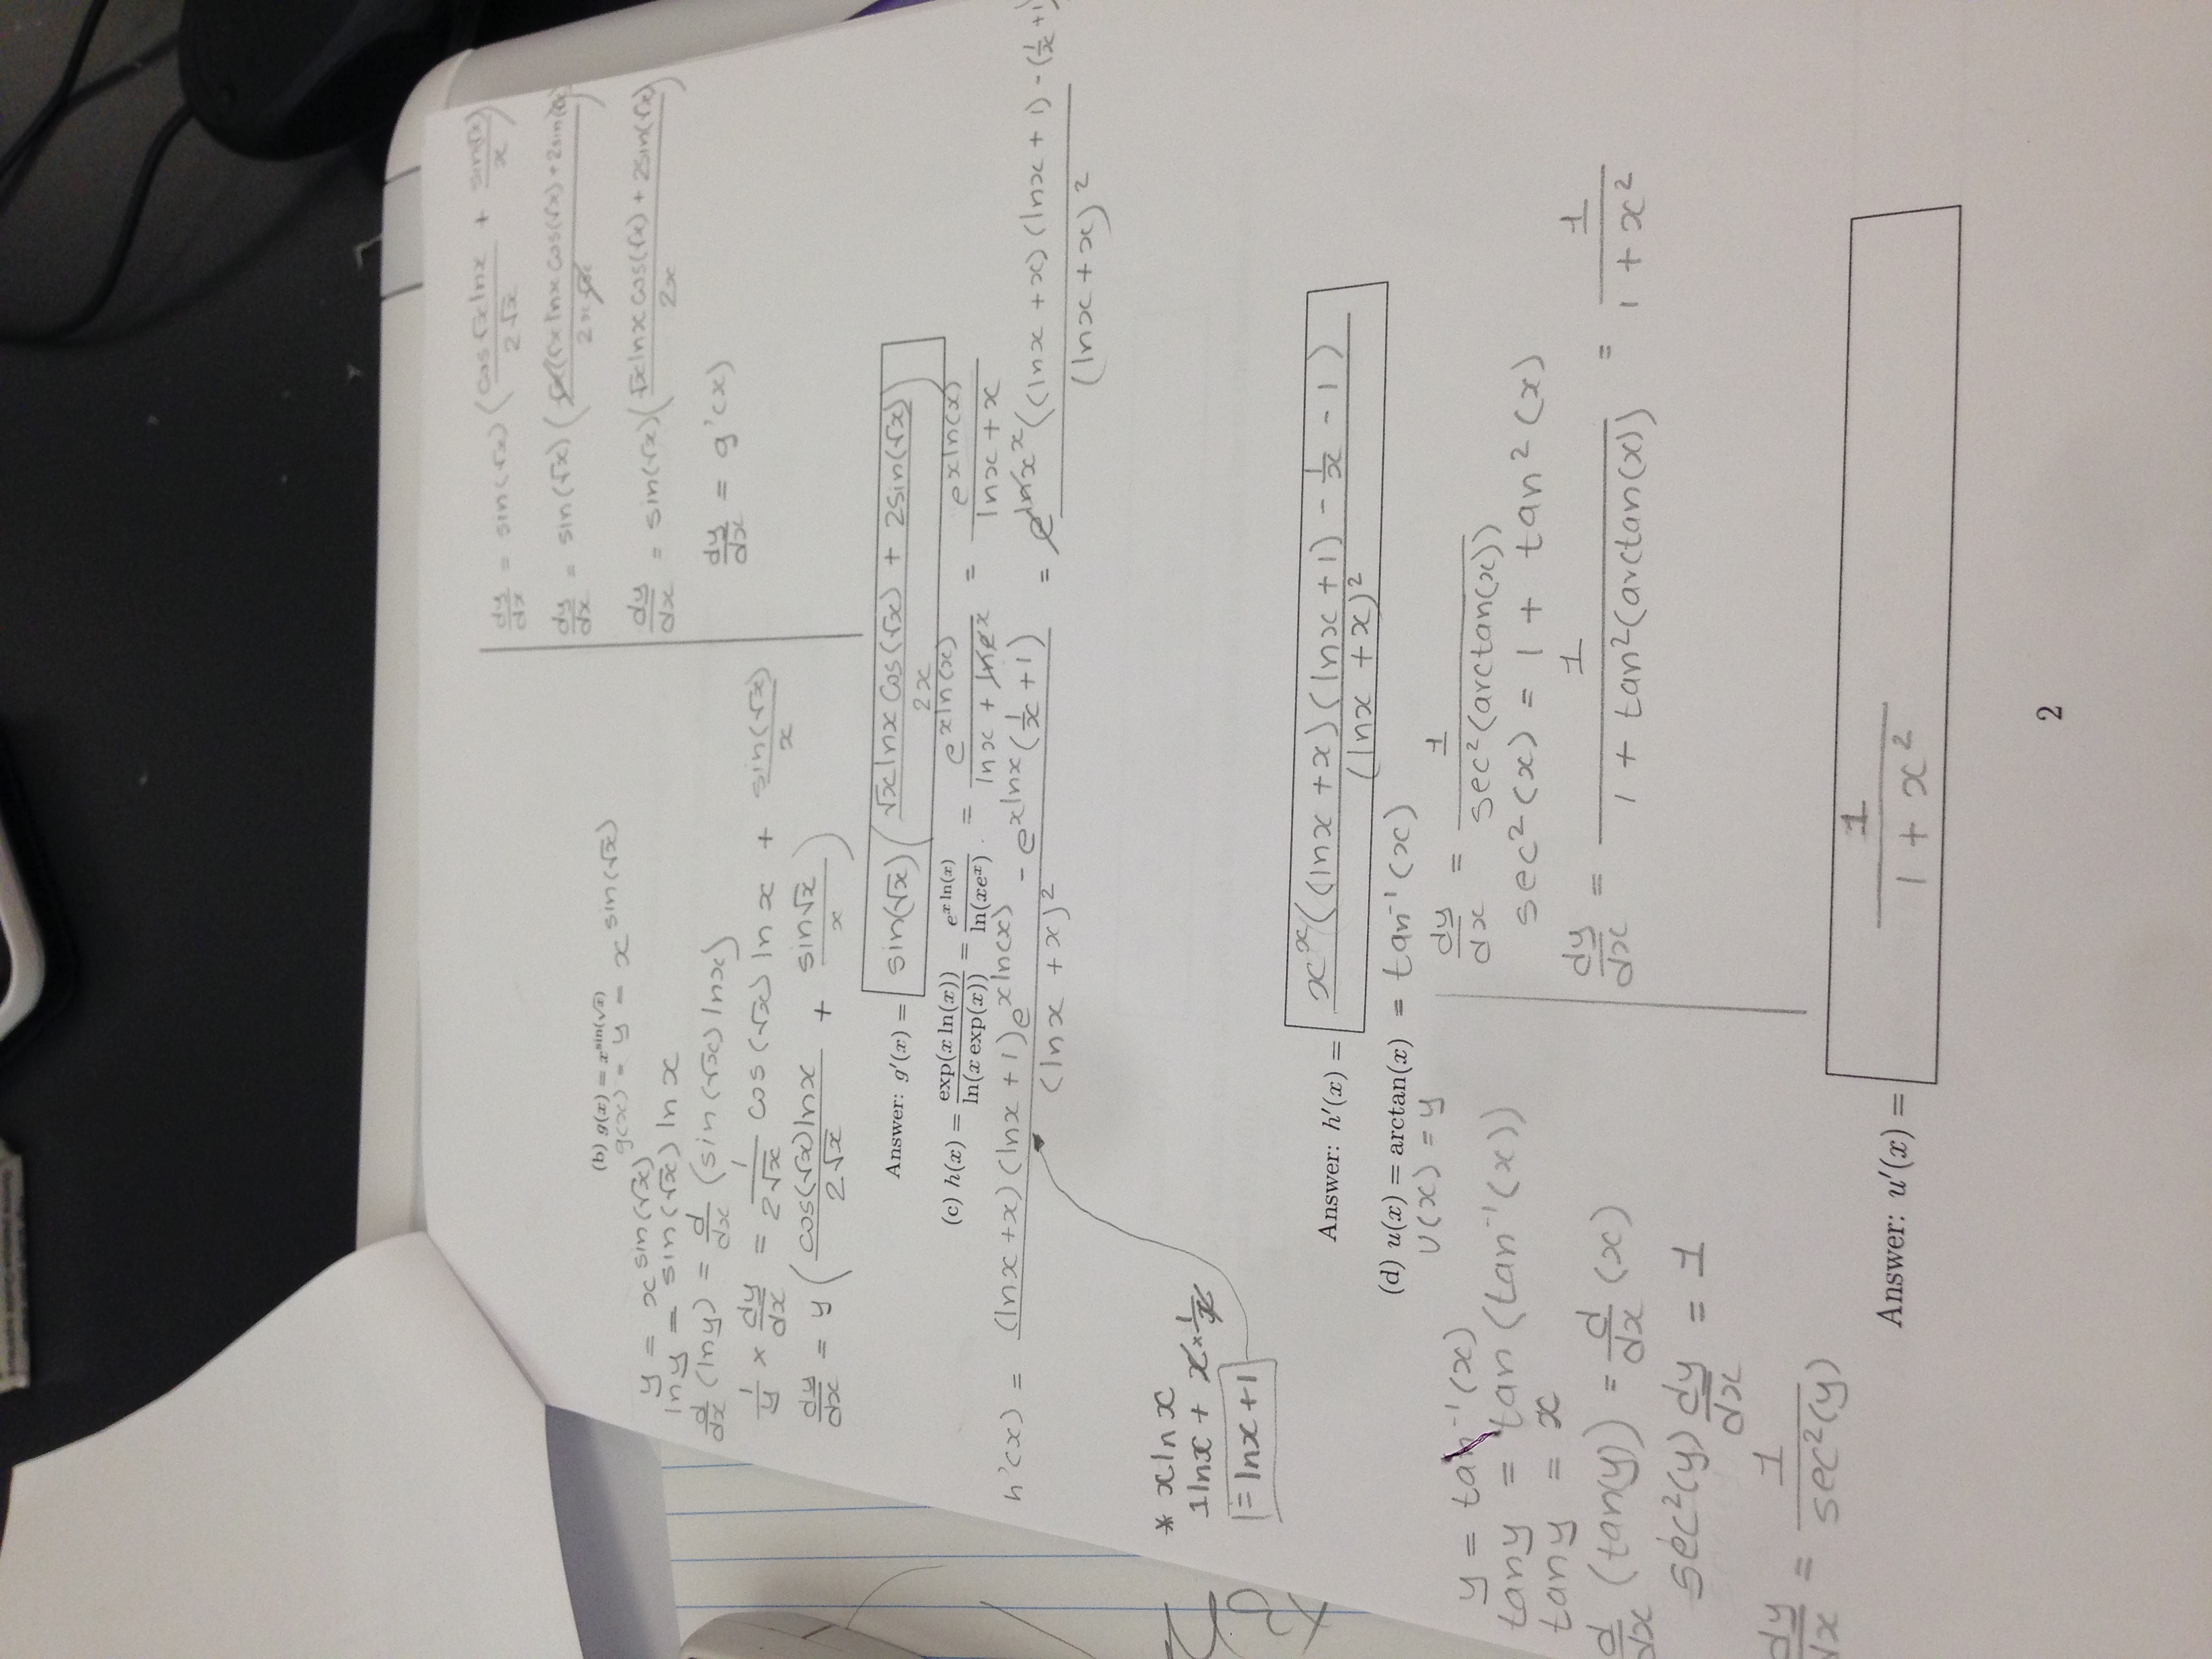 (b) g(x) = x^{sin(√x)}
g(x) = y = x^{sin(√x)}
y = x^{sin(√x)}
ln y = sin(√x) ln x
d/dx (ln y) = d/dx (sin(√x) ln x)
1/y × dy/dx = 1/(2√x) cos(√x) ln x + sin(√x)/x
dy/dx = y ( cos(√x) ln x / 2√x + sin√x / x )
dy/dx = sin(√x) ( cos√x ln x / 2√x + sin(√x) / x )
dy/dx = sin(√x) ( √x (x ln x cos(√x) + 2 sin(√x)) / 2x√x )
dy/dx = sin(√x) ( √x ln x cos(√x) + 2sin(√x) / 2x )
dy/dx = g'(x)
Answer: g′(x) = sin(√x) ( √x ln x cos(√x) + 2sin(√x) / 2x )
(c) h(x) = exp(x ln(x)) / ln(x exp(x)) = e^{x ln(x)} / ln(xe^x) = e^{x ln(x)} / ln x + ln e^x = e^{x ln(x)} / ln x + x
h'(x) = (ln x + x)(ln x + 1)e^{x ln(x)} - e^{x ln x}(1/x + 1) / (ln x + x)² = e^{ln x^x}((ln x + x)(ln x + 1) - (1/x + 1) / (ln x + x)²
* x ln x
1 ln x + x × 1/x
= ln x + 1
Answer: h′(x) = x^x((ln x + x)(ln x + 1) - 1/x - 1) / (ln x + x)²
(d) u(x) = arctan(x) = tan⁻¹(x)
U(x) = y
y = tan⁻¹(x)
tan y = tan(tan⁻¹(x))
tan y = x
d/dx (tan(y)) = d/dx (x)
sec²(y) dy/dx = 1
dy/dx = 1 / sec²(y)
dy/dx = 1 / sec²(arctan(x))
sec²(x) = 1 + tan²(x)
dy/dx = 1 / 1 + tan²(arctan(x)) = 1 / 1 + x²
Answer: u′(x) = 1 / 1 + x²
2